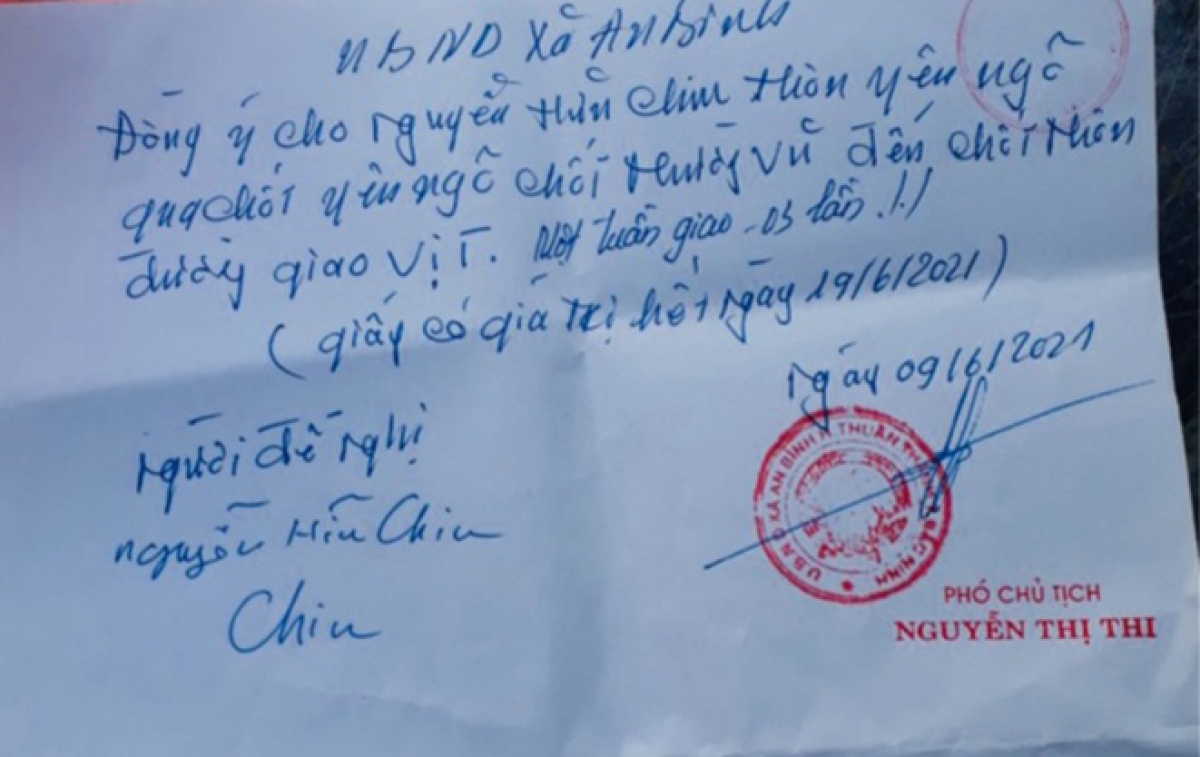 UBND Xã An Bình
Đồng ý cho Nguyễn Hữu Chiu thôn yên ngô
qua chốt yên ngô chốt thường vũ đến chốt thôn
đường giao vịt. Một tuần giao - 03 lần ./.)
( giấy có giá trị hết ngày 19/6/2021 )
Ngày 09/6/2021
Người đề nghị
Nguyễn Hữu Chiu
Chiu
U.B.N.D XÃ AN BÌNH H. THUẬN THÀNH T. BẮC NINH
PHÓ CHỦ TỊCH
NGUYỄN THỊ THI